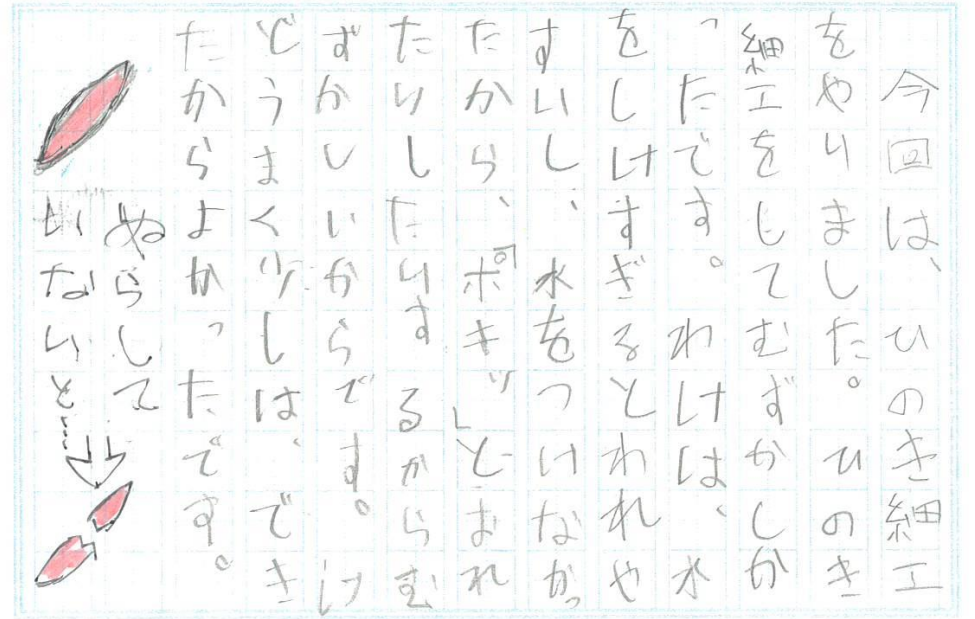 今回は、ひのき細工
をやりました。ひのき
細工をしてむずかしか
ったです。わけは、水
をしけすぎるとわれや
すいし、水をつけなかっ
たから、「ポキッ」とおれ
たりしたりするからむ
ずかしいからです。け
どうまく少しは、でき
たからよかったです。
ぬらして
いないと…